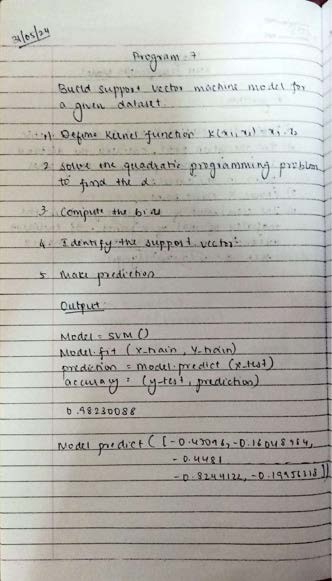 31/05/24
Program-7
Build support vector machine model for
a given dataset.
1) Define Kernel function K(x1, x2) = xi.
2. Solve the quadratic programming problem
to find the α.
3. Compute the bias
4. Identify the support vector.
5. Make prediction
Output:
Model = SVM()
Model.fit (x-train, y-train)
prediction = model.predict (x-test)
accuracy = (y-test, prediction)
0.98230088
Model predict ([-0.47096, -0.16048984,
-0.4481
-0.8244122, -0.19956318]]